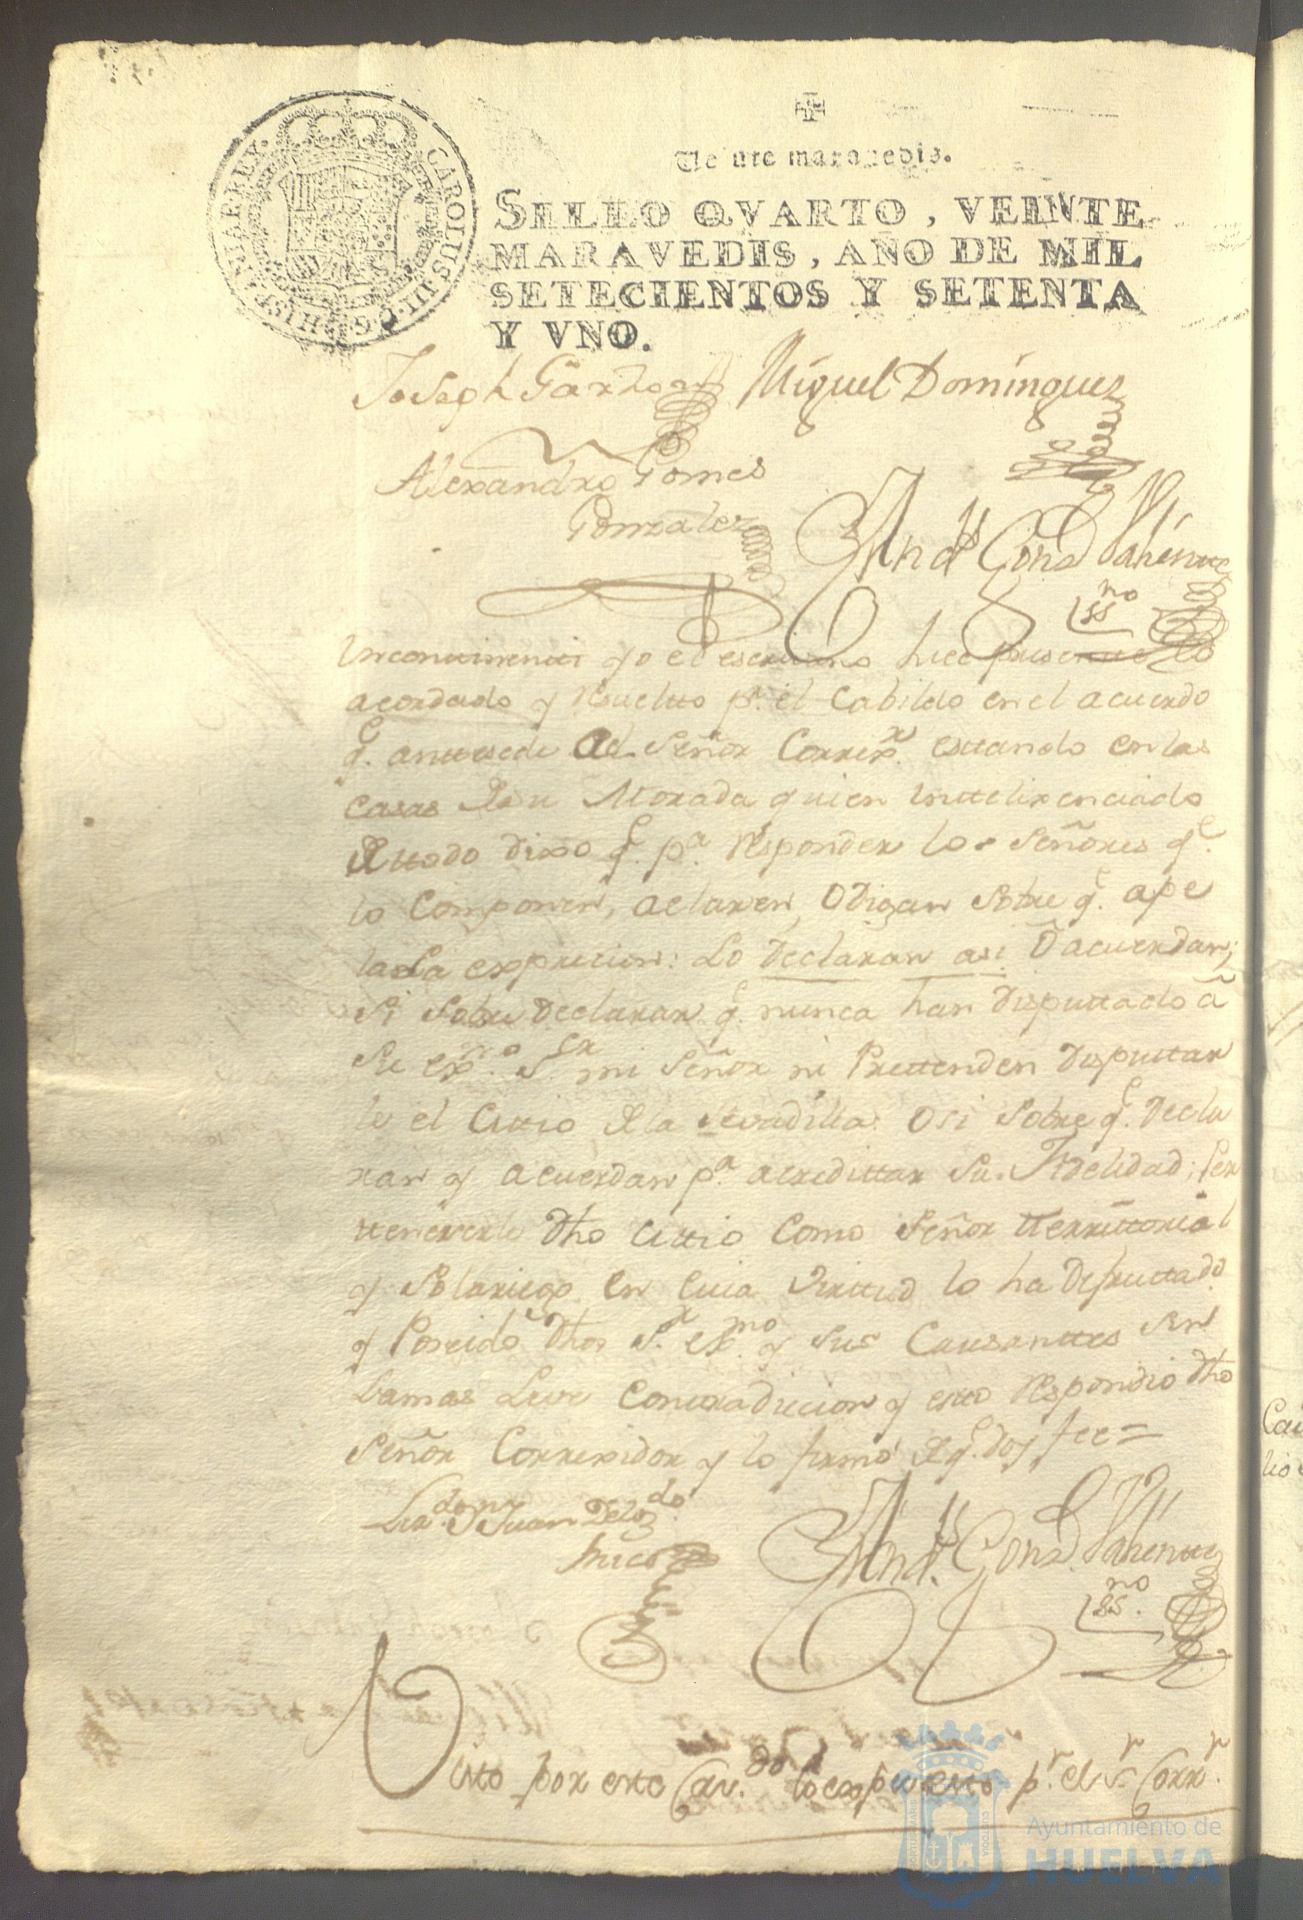 CAROLUS III. D. G. HISPANIAR. REY.
Veinte maravedis.
SELLO QVARTO, VEINTE
MARAVEDIS, AÑO DE MIL
SETECIENTOS Y SETENTA
Y VNO.
Joseph Garzia Miguel Dominguez
Alexandro Gomes
Gonzalez
Andˢ Gonz Vahenttᵉ
ssⁿᵒ
Yncontinentti yo el escrivano hice presentte lo
acordado y Resueltto pʳ. el Cabildo en el acuerdo
qᵉ. anttesede Al Señor Correxʳ. esttando en las
casas de su Morada quien Ynttelixenciado
de ttodo dixo qᵉ. pᵃ. responder los Señores qᵉ.
lo Componen, aclaren, O digan sobre qᵉ. ape
la la exprecion: Lo Declaran asi ô acuerdan;
Si sobre Declarar qᵉ. nunca han Disputtado â
Su exᵐᵒ. Sᵒʳ mi Señor ni Prettenden Disputtar
le el Cittio de la Sevadilla: O si sobre qᵉ. Decla
ran y acuerdan pᵃ. acredittar su Fidelidad; Per
ttenecerle Dho Cittio Como Señor tterrittorial
y Solariego en Cuia Virttud lo ha Disfruttado
y Poseido Dho Sʳ. exᵐᵒ. y sus Causanttes sin
Jamas Leve Conttradiccion y estto respondio Dho
Señor Correxidor y lo firmó de qᵉ. doy fee=
Licᵈᵒ. Dⁿ Juan
Andˢ. Gonz. Vahenttᵉ
ssⁿᵒ.
Vistto por este Cavᵈᵒ. lo expuestto pʳ. el Sʳ. Corrʳ.
Ayuntamiento de
HUELVA